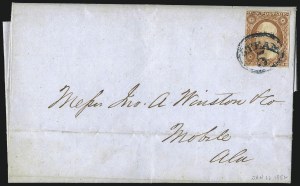 Messrs Jno. A Winston & Co
Mobile
Ala